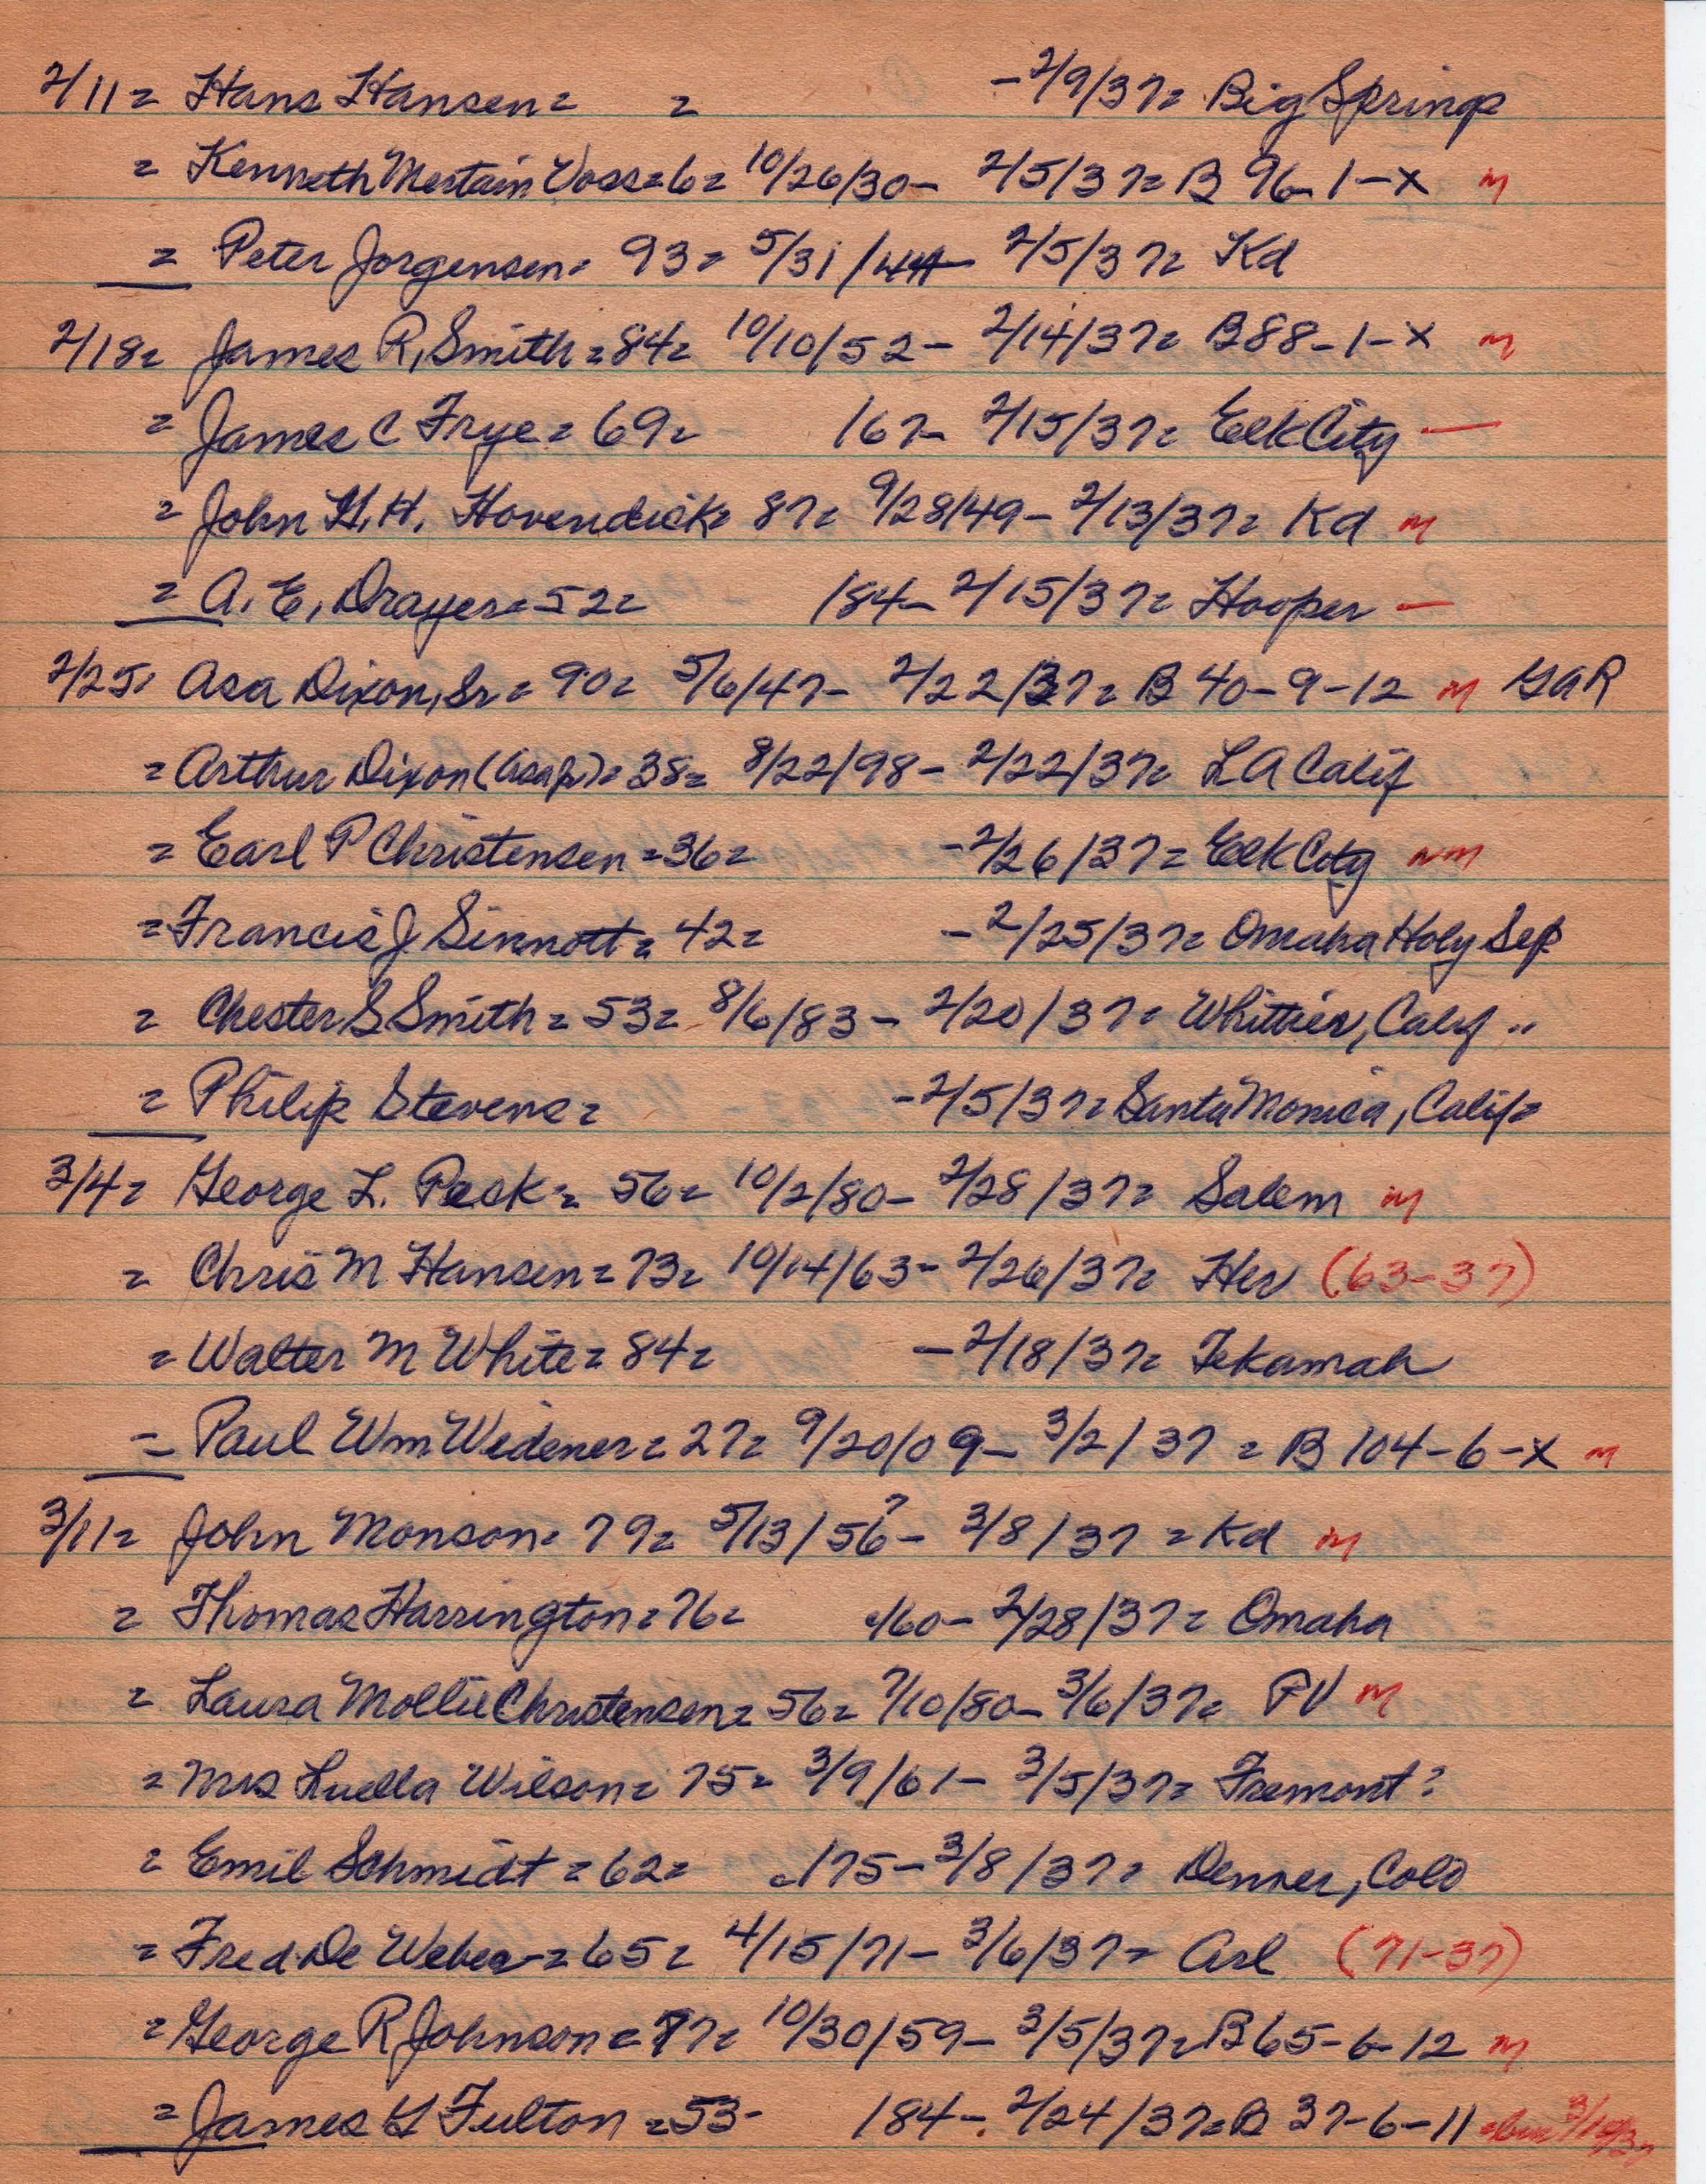 2/11= Hans Hansen= = -2/9/37= Big Springs
= Kenneth Mertain Voss=6= 10/26/30- 2/5/37= B 96-1-X m
= Peter Jorgensen= 93= 5/31/44- 2/5/37= Kd
2/18= James R, Smith=84= 10/10/52- 2/14/37= B88-1-X m
= James C Frye= 69= /67- 2/15/37= Elk City —
= John H. H. Hovendick= 87= 9/28/49- 2/13/37= Kd m
= A. E, Drayer=52= /84- 2/15/37= Hooper —
2/25= Asa Dixon, Sr= 90= 5/6/47- 2/22/37= B 40-9-12 m GAR
= Arthur Dixon (Asa Jr)= 38= 8/22/98- 2/22/37= LA Calif
= Earl P Christensen=36= -2/26/37= Elk City nm
= Francis J Sinnott= 42= -2/25/37= Omaha Holy Sep
= Chester S Smith= 53= 8/6/83- 2/20/37= Whittier, Calif ..
= Philip Stevens= -2/5/37= Santa Monica, Calif=
3/4= George L. Peck= 56= 10/2/80- 2/28/37= Salem m
= Chris M Hansen=73= 10/14/63- 2/26/37= Her (63-37)
= Walter M White= 84= -2/18/37= Tekamah
= Paul Wm Widener=27= 9/20/09- 3/2/37= B 104-6-X m
3/11= John Monson= 79= 5/13/56?- 3/8/37= Kd m
= Thomas Harrington=76= /60- 2/28/37= Omaha
= Laura Mollie Christensen= 56= 7/10/80- 3/6/37= PV m
= Mrs Luella Wilson= 75= 3/9/61- 3/5/37= Fremont?
= Emil Schmidt=62= /75- 3/8/37= Denver, Colo
= Fred De Weber-=65= 4/15/71- 3/6/37= Arl (71-37)
= George R Johnson=77= 10/30/59- 3/5/37= B65-6-12 m
= James G Fulton=53- /84- 2/24/37= B 37-6-11